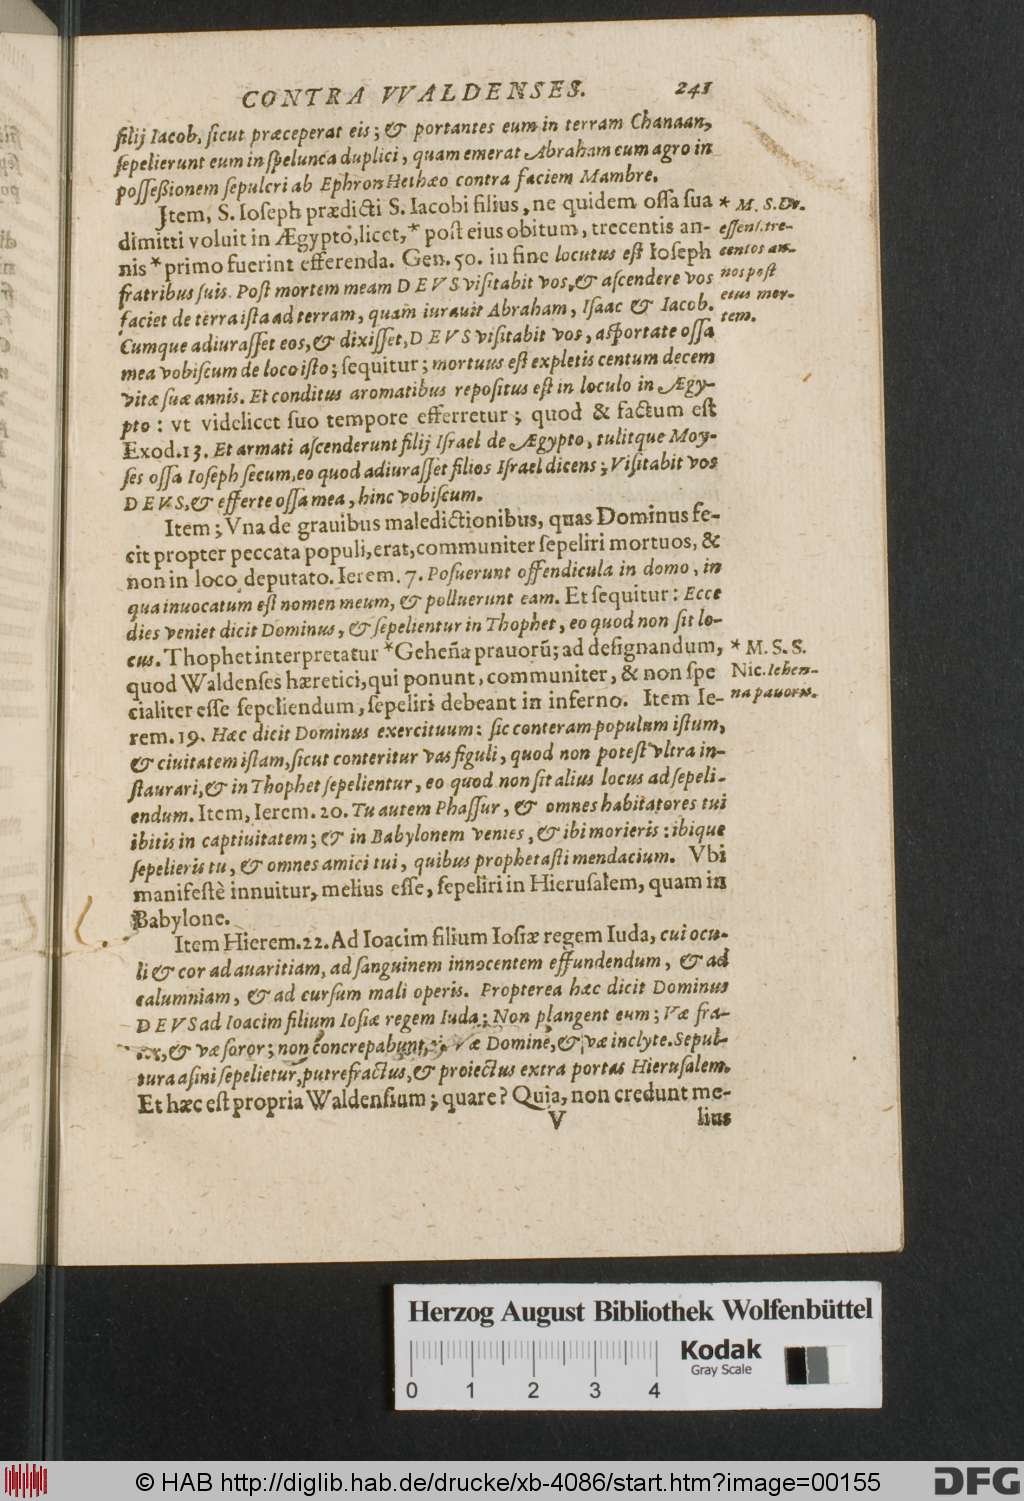 CONTRA VVALDENSES. 241
filij Iacob, ſicut præceperat eis; & portantes eum in terram Chanaan,
ſepelierunt eum in ſpelunca duplici, quam emerat Abraham cum agro in
poſſeßionem ſepulcri ab Ephron Hethæo contra faciem Mambre.
Item, S. Ioſeph prædicti S. Iacobi filius, ne quidem oſſa ſua
dimitti voluit in Ægypto, licet,* poſt eius obitum, trecentis an-
nis * primo fuerint efferenda. Gen. 50. in fine locutus eſt Ioſeph
fratribus ſuis. Poſt mortem meam DEVS viſitabit vos, & aſcendere vos
faciet de terra iſta ad terram, quam iurauit Abraham, Iſaac & Iacob.
Cumque adiuraſſet eos, & dixiſſet, DEVS viſitabit vos, aſportate oſſa
mea vobiſcum de loco iſto; ſequitur; mortuus eſt expletis centum decem
vitæ ſuæ annis. Et conditus aromatibus repoſitus eſt in loculo in Ægy-
pto: vt videlicet ſuo tempore efferretur; quod & factum eſt
Exod. 13. Et armati aſcenderunt filij Iſrael de Ægypto, tulitque Moy-
ſes oſſa Ioſeph ſecum, eo quod adiuraſſet filios Iſrael dicens; Viſitabit vos
DEVS, & efferte oſſa mea, hinc vobiſcum.
* M. S. De.
eſſent tre-
centos an-
nos poſt
eius mor-
tem.
Item; Vna de grauibus maledictionibus, quas Dominus fe-
cit propter peccata populi, erat, communiter ſepeliri mortuos, &
non in loco deputato. Ierem. 7. Poſuerunt offendicula in domo, in
qua inuocatum eſt nomen meum, & polluerunt eam. Et ſequitur: Ecce
dies veniet dicit Dominus, & ſepelientur in Thophet, eo quod non ſit lo-
cus. Thophet interpretatur * Geheña prauorũ; ad deſignandum,
quod Waldenſes hæretici, qui ponunt, communiter, & non ſpe
cialiter eſſe ſepeliendum, ſepeliri debeant in inferno. Item Ie-
rem. 19. Hæc dicit Dominus exercituum: ſic conteram populum iſtum,
& ciuitatem iſtam, ſicut conteritur vas figuli, quod non poteſt vltra in-
ſtaurari, & in Thophet ſepelientur, eo quod non ſit alius locus ad ſepeli-
endum. Item, Ierem. 20. Tu autem Phaſſur, & omnes habitatores tui
ibitis in captiuitatem; & in Babylonem venies, & ibi morieris: ibique
ſepelieris tu, & omnes amici tui, quibus prophetaſti mendacium. Vbi
manifeſtè innuitur, melius eſſe, ſepeliri in Hieruſalem, quam in
Babylone.
* M. S. S.
Nic. Iehen-
na pauoris.
Item Hierem. 22. Ad Ioacim filium Ioſiæ regem Iuda, cui ocu-
li & cor ad auaritiam, ad ſanguinem innocentem effundendum, & ad
calumniam, & ad curſum mali operis. Propterea hæc dicit Dominus
DEVS ad Ioacim filium Ioſiæ regem Iuda; Non plangent eum; Væ fra-
& væ ſoror; non concrepabunt ei, Væ Domine, & væ inclyte. Sepul-
tura aſini ſepelietur, putrefactus, & proiectus extra portas Hieruſalem.
Et hæc eſt propria Waldenſium; quare? Quia, non credunt me-
V lius
Herzog August Bibliothek Wolfenbüttel
Kodak
Gray Scale
0 1 2 3 4
© HAB http://diglib.hab.de/drucke/xb-4086/start.htm?image=00155
DFG